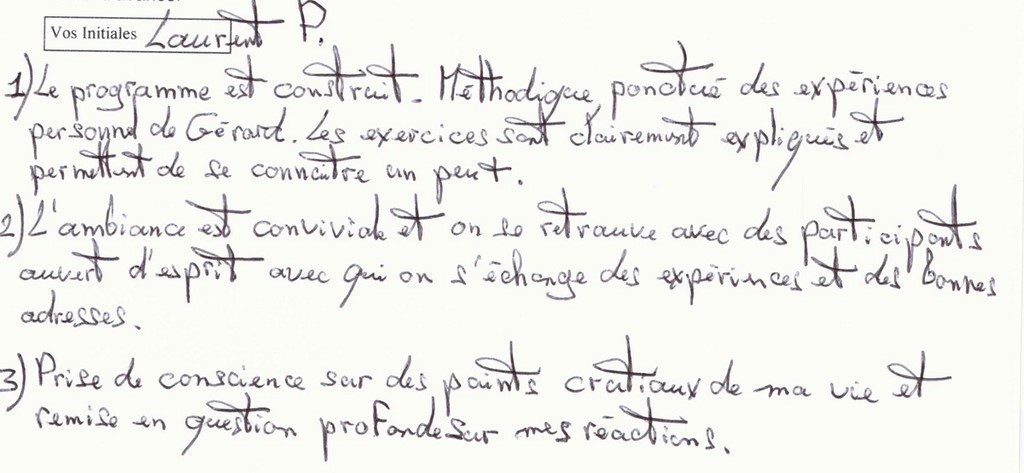 Vos Initiales Laurent P.
1) Le programme est construit. Méthodique, ponctué des expériences
personnel de Gérard. Les exercices sont clairement expliqués et
permettent de se connaître un peut.
2) L'ambiance est conviviale et on se retrouve avec des participants
ouvert d'esprit avec qui on s'échange des expériences et des bonnes
adresses.
3) Prise de conscience sur des points cruciaux de ma vie et
remise en question profonde sur mes réactions.